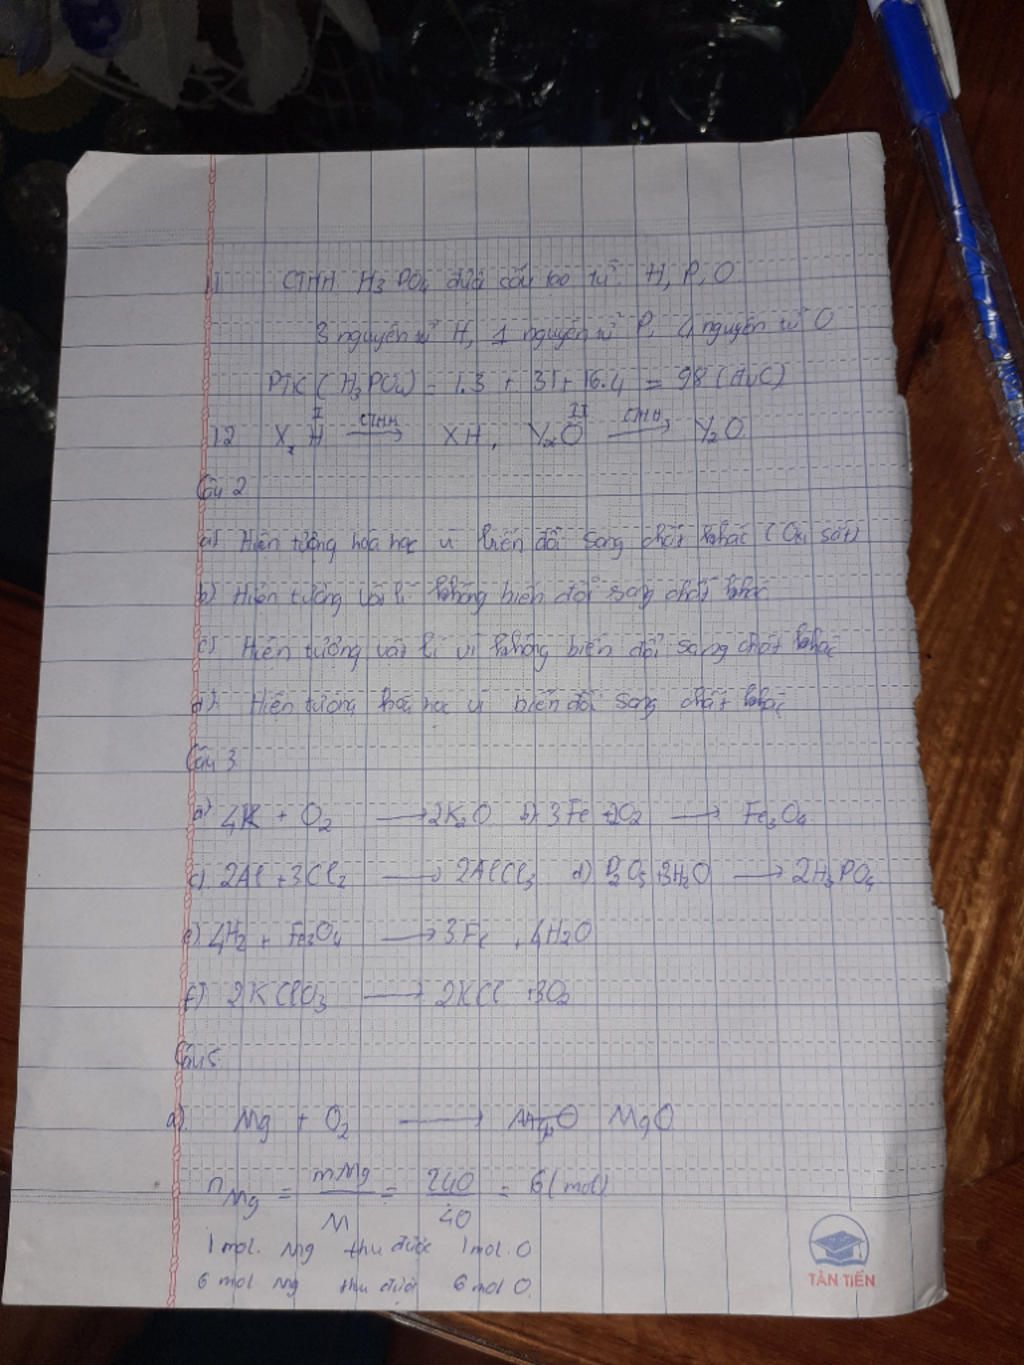 1) CTHH H3PO4 được cấu tạo từ H, P, O
3 nguyên tử H, 1 nguyên tử P, 4 nguyên tử O
PTK (H3PO4) = 1.3 + 31 + 16.4 = 98 (đvC)
12 X, H I CTHH → XH, Y2O II CTHH → Y2O
Câu 2
a) Hiện tượng hóa học vì biến đổi sang chất khác (Oxi sắt)
b) Hiện tượng vật lí không biến đổi sang chất khác
c) Hiện tượng vật lí vì không biến đổi sang chất khác
d) Hiện tượng hoá học vì biến đổi sang chất khác
Câu 3
a) 4K + O2 → 2K2O b) 3Fe + 2O2 → Fe3O4
c) 2Al + 3Cl2 → 2AlCl3 d) P2O5 + 3H2O → 2H3PO4
e) 4H2 + Fe3O4 → 3Fe + 4H2O
f) 2KClO3 → 2KCl + 3O2
Câu 5
a) Mg + O2 → MgO
nMg = mMg / M = 240 / 40 = 6 (mol)
1 mol Mg thu được 1 mol O
6 mol Mg thu được 6 mol O
TÂN TIẾN